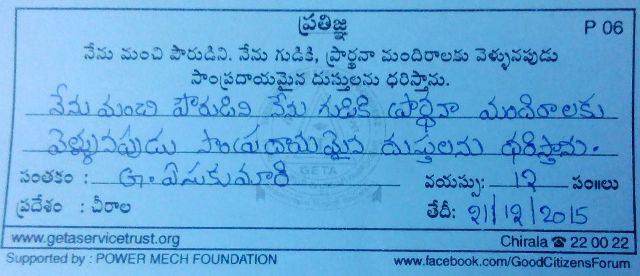 ప్రతిజ్ఞ
P 06
నేను మంచి పౌరుడిని. నేను గుడికి, ప్రార్థనా మందిరాలకు వెళ్ళునపుడు
సాంప్రదాయమైన దుస్తులను ధరిస్తాను.
నేను మంచి పౌరుడిని నేను గుడికి ప్రార్థనా మందిరాలకు
వెళ్ళునపుడు సాంప్రదాయమైన దుస్తులను ధరిస్తాను.
GETA
సంతకం : ఉ. ఏసుకుమారి వయస్సు: 12 సం॥లు
ప్రదేశం : చీరాల తేదీ: 21/12/2015
www.getaservicetrust.org Chirala ☎ 22 00 22
Supported by : POWER MECH FOUNDATION www.facebook.com/GoodCitizensForum